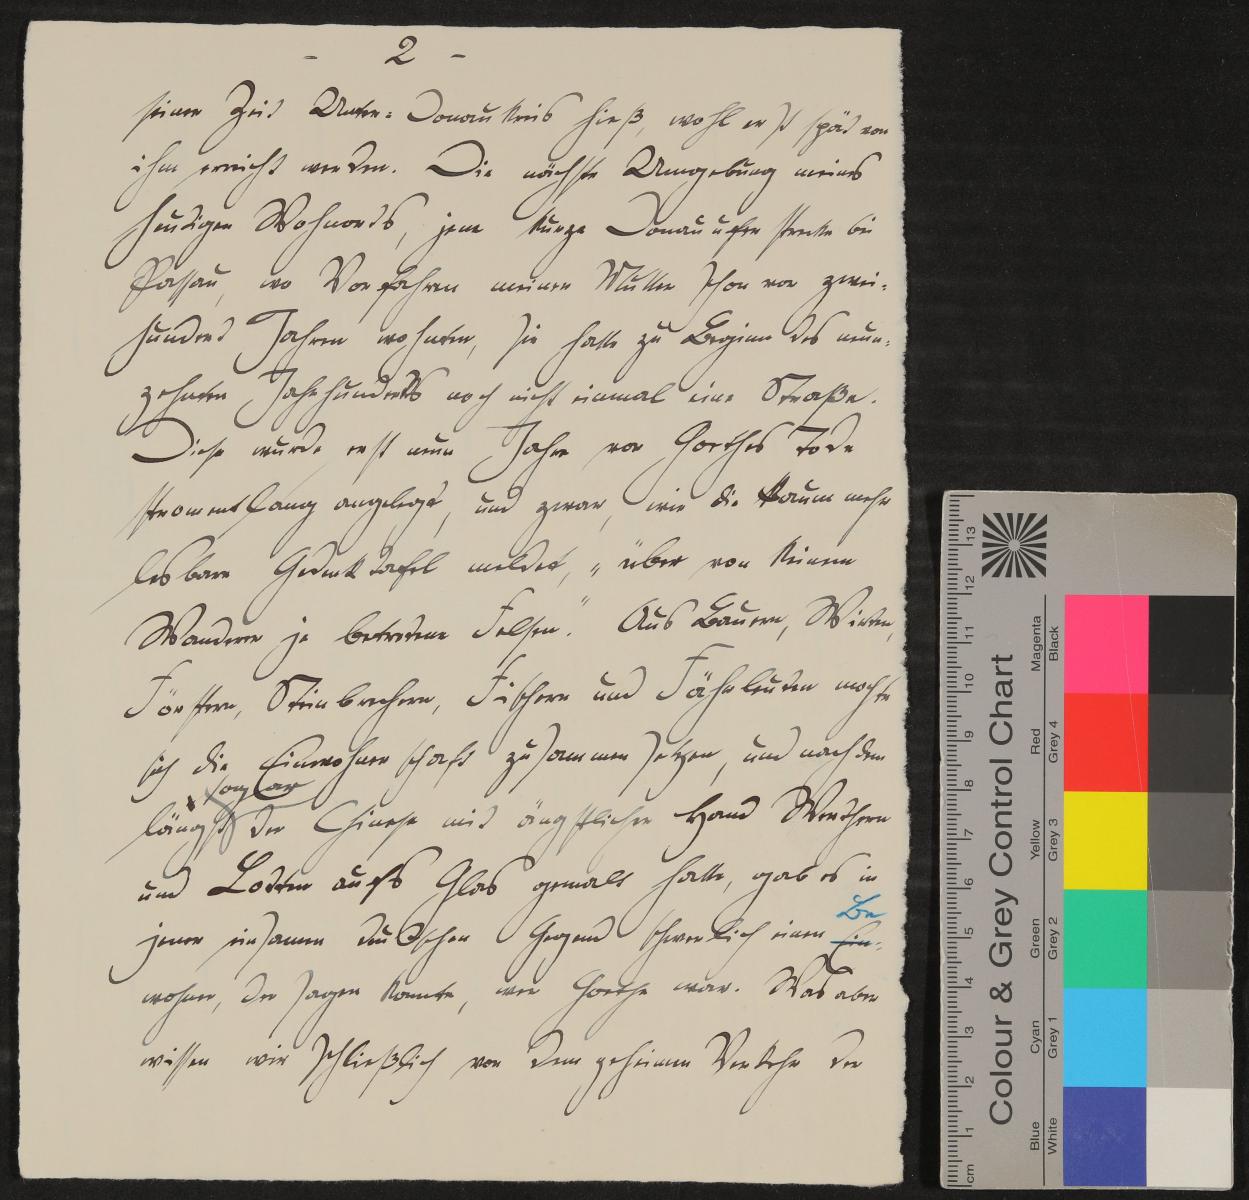 - 2 -
seiner Zeit Unter-Donaukreis hieß, wohl erst spät von
ihm erreicht werden. Die nächste Umgebung meines
heutigen Wohnorts, jene kurze Donauuferstrecke bei
Passau, wo Vorfahren meiner Mutter schon vor zwei-
hundert Jahren wohnten, sie hatte zu Beginn des neun-
zehnten Jahrhunderts noch nicht einmal eine Straße.
Diese wurde erst neun Jahre vor Goethes Tode
stromentlang angelegt, und zwar, wie die kaum mehr
lesbare Gedenktafel meldet, „über von keinem
Wanderer je betretene Felsen." Aus Bauern, Wirten,
Förstern, Steinbrechern, Fischern und Fährleuten mochte
sich die Einwohnerschaft zusammensetzen, und nachdem
sogar
längst der Chinese mit ängstlicher Hand Werthern
und Lotten aufs Glas gemalt hatte, gab es in
Be
jener einsamen deutschen Gegend schwerlich einen Ein-
wohner, der sagen konnte, wer Goethe war. Was aber
wissen wir schließlich von dem geheimen Verkehr der
Colour & Grey Control Chart
Blue Cyan Green Yellow Red Magenta
White Grey 1 Grey 2 Grey 3 Grey 4 Black
cm 1 2 3 4 5 6 7 8 9 10 11 12 13